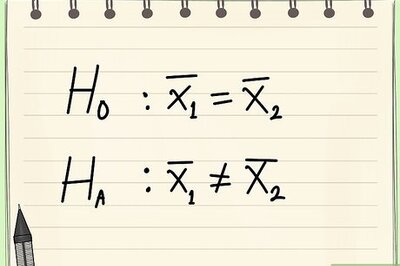 H₀ : x̄₁ = x̄₂
Hₐ : x̄₁ ≠ x̄₂